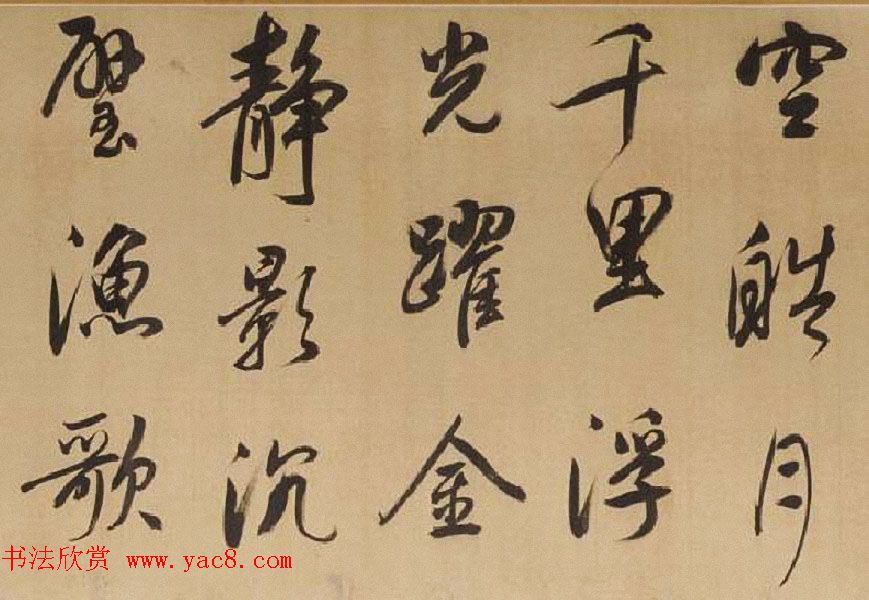 空皓月
千里浮
光躍金
静影沉
璧漁歌
书法欣赏 www.yac8.com